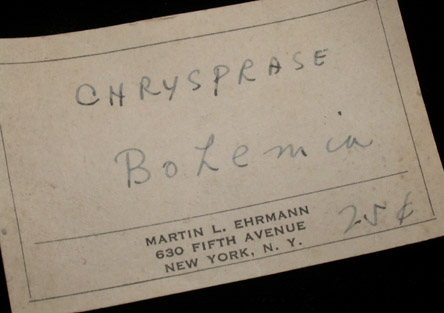 CHRYSPRASE
Bohemia
MARTIN L. EHRMANN
630 FIFTH AVENUE
NEW YORK, N. Y.
25¢